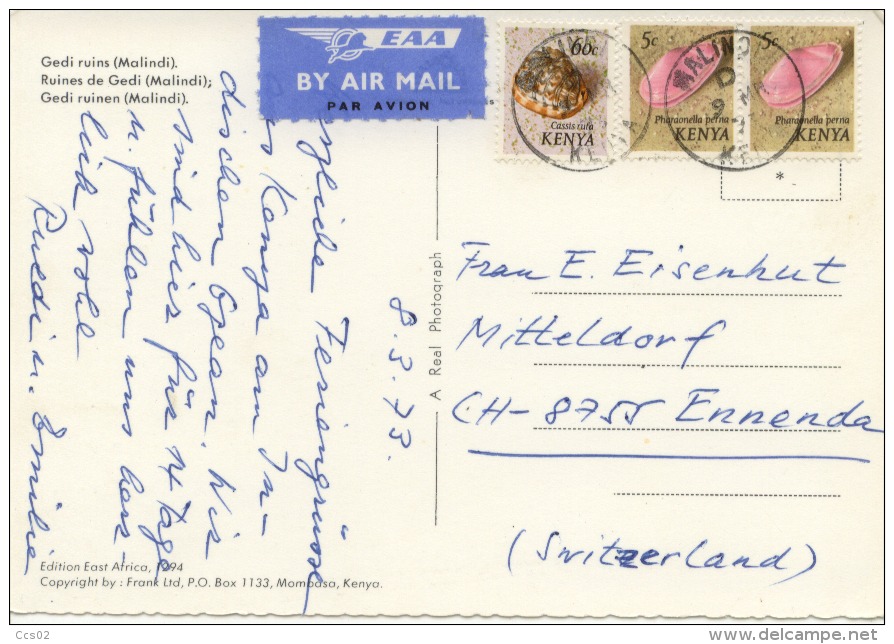 Gedi ruins (Malindi).
Ruines de Gedi (Malindi);
Gedi ruinen (Malindi).
EAA
BY AIR MAIL
PAR AVION
60c
Cassis rufa
KENYA
5c
Pharaonella perna
KENYA
5c
Pharaonella perna
KENYA
KENYA
MALINDI
D
9 MA
KE
*
8.3.73.
zliche Feriengrüsse
s Kenya am In-
dischen Ozean. Wir
sind hier für 14 Tage
u. fühlen uns herz-
lich wohl
Ruedi u. Emilie
A Real Photograph
Frau E. Eisenhut
Mitteldorf
CH-8755 Ennenda
(Switzerland)
Edition East Africa, 1294
Copyright by: Frank Ltd, P.O. Box 1133, Mombasa, Kenya.
Ccs02
delcampe.net